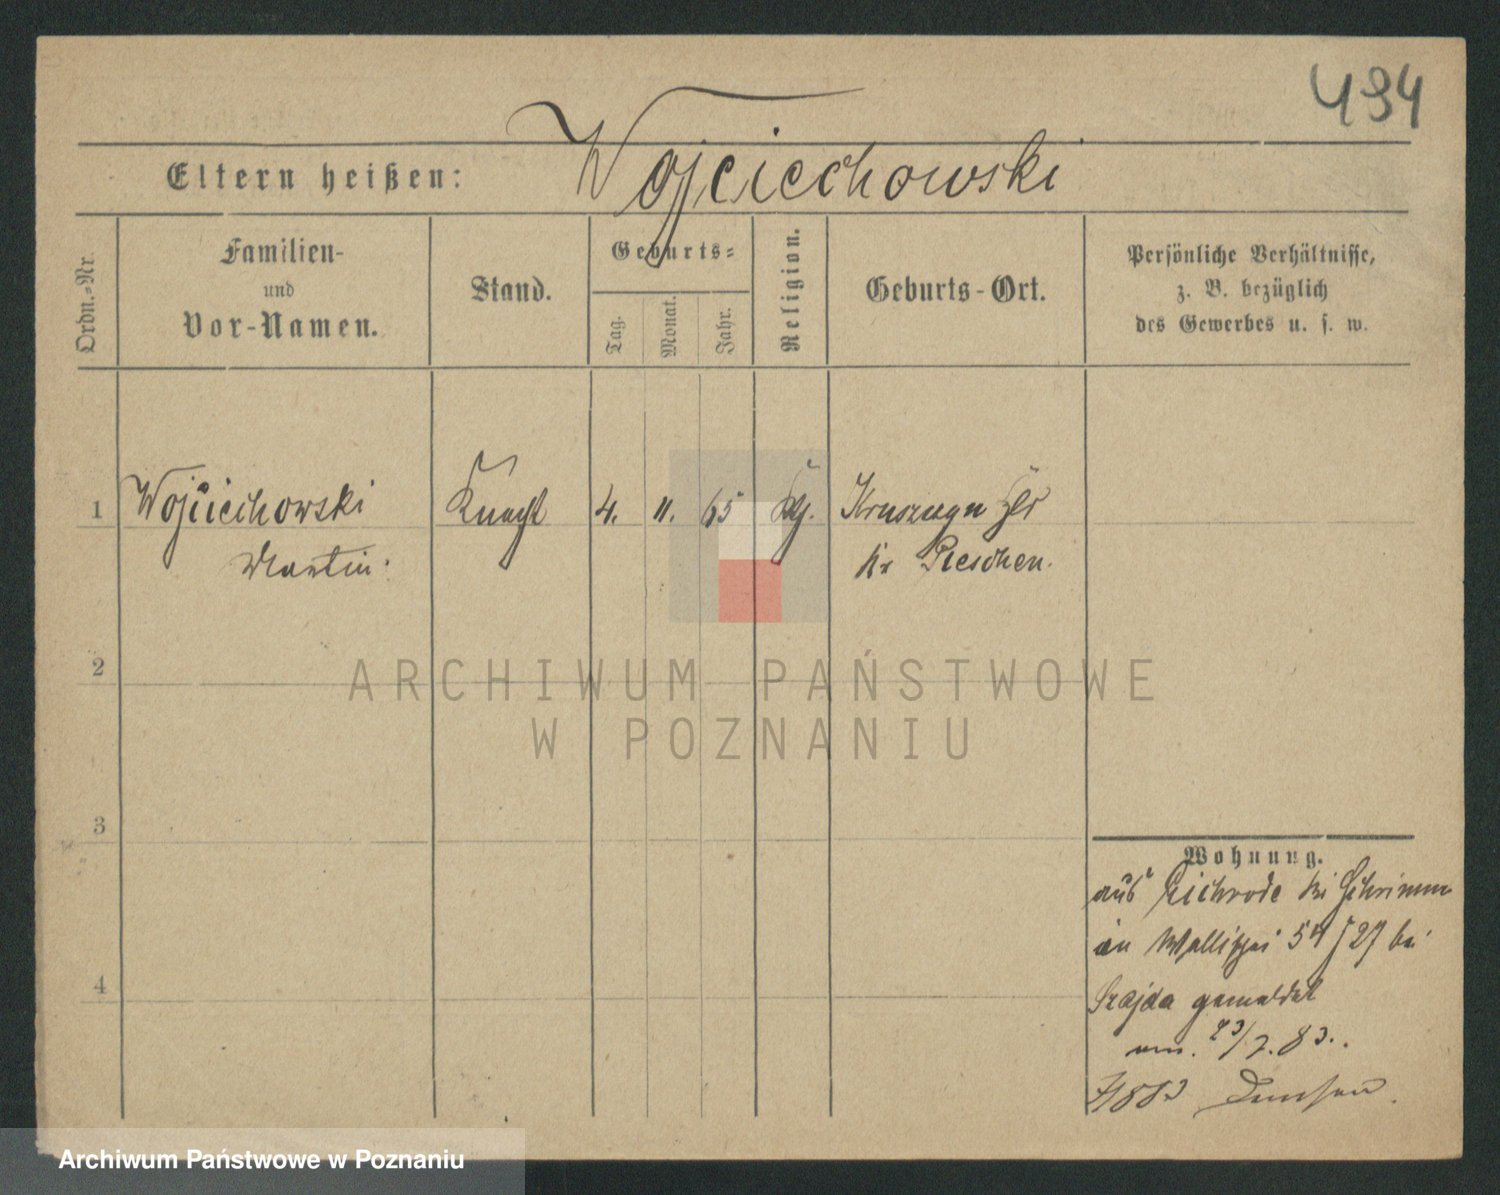 494
Eltern heißen: Wojciechowski
Ordn.-Nr.
Familien-
und
Vor-Namen.
Stand.
Geburts-
Tag.
Monat.
Jahr.
Religion.
Geburts-Ort.
Persönliche Verhältnisse,
z. B. bezüglich
des Gewerbes u. s. w.
1 Wojciechowski Knecht 4. 11. 65
Martin Kr Pleschen.
2
ARCHIWUM PAŃSTWOWE
W POZNANIU
3
4
Wohnung.
aus Eichrode bei Schrimm
in Wallischei 54/27 bei
Szajda gemeldet
am. 23/7. 83.
Archiwum Państwowe w Poznaniu